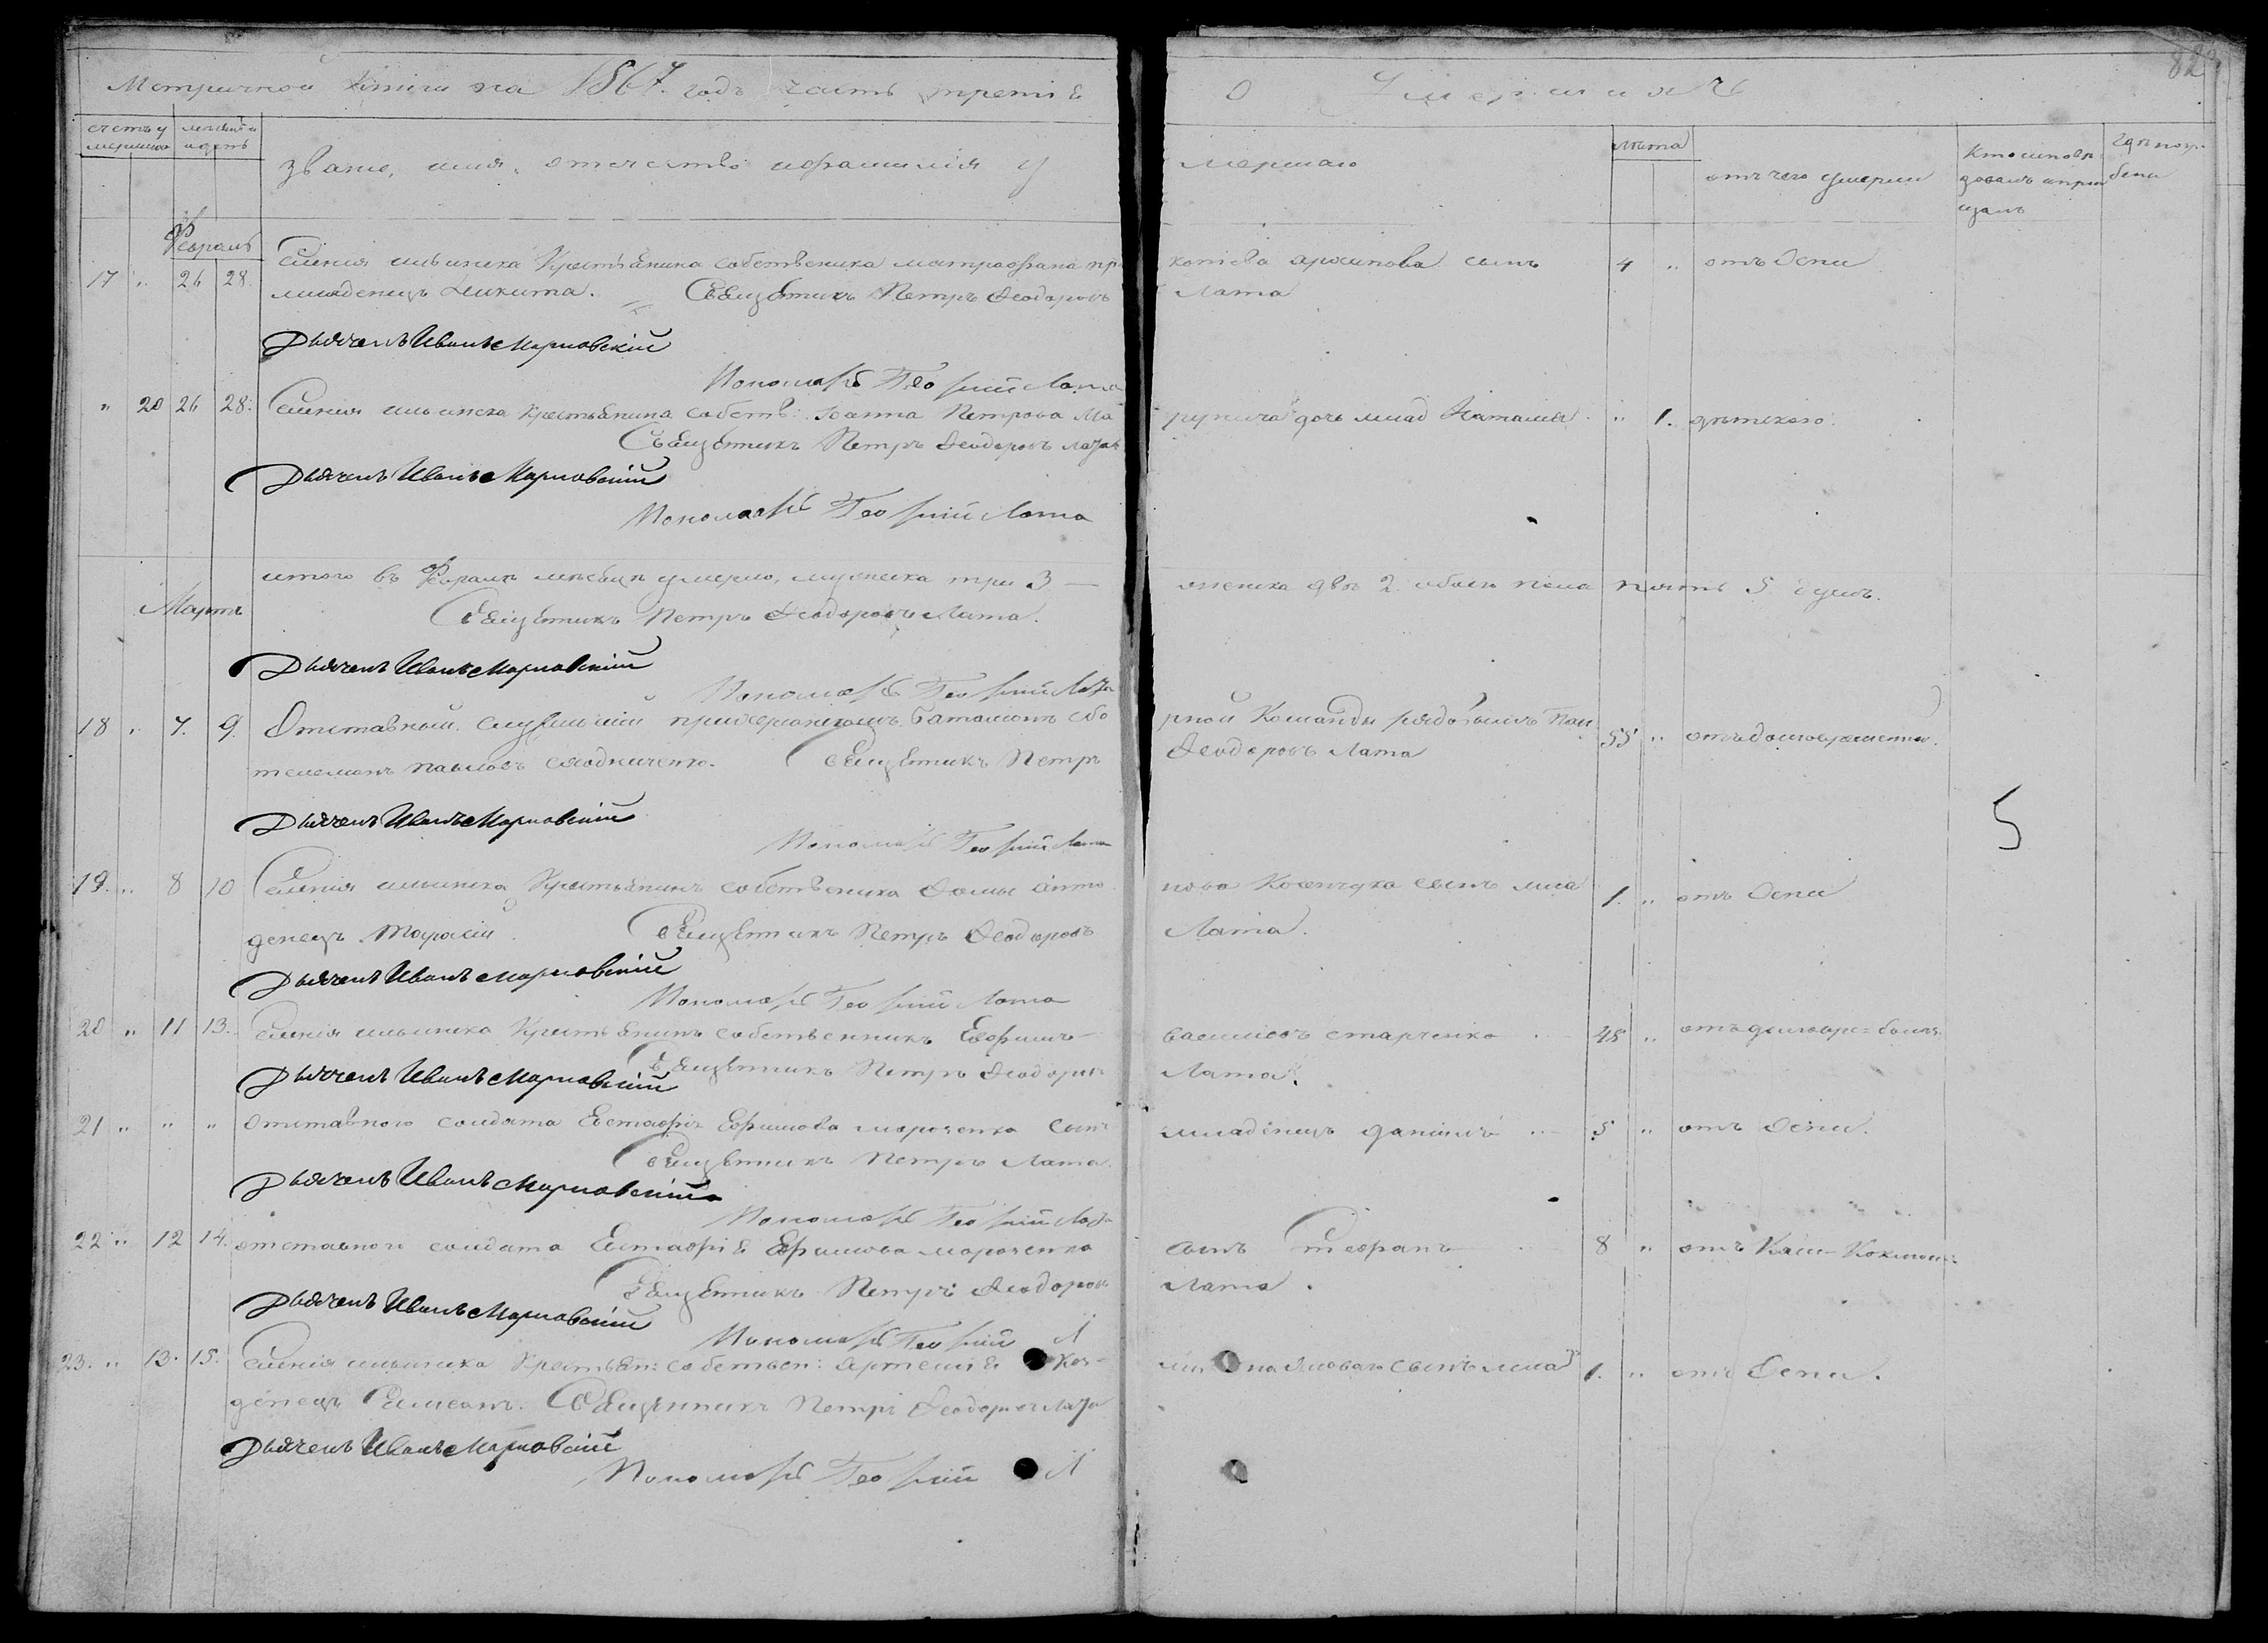 Метричной книги на 1867. годъ часть третія
о Умершихъ
82
счетъ умершихъ
мѣсяцъ и день
званіе, имя, отечество и фамилія у
мершаго
лѣта
отъ чего умерли
Кто исповѣдовалъ и при
щалъ
гдѣ погребены
Февраль
17 " 26 28. селенія ильинска Крестьянина собственика митрофана про
копіева архипова сынъ 4 " отъ Оспи
младенецъ Никита. Священикъ Петръ Феодоровъ
Лата
Дьячекъ Иванъ Марловскій
Пономарь Георгій Лата
" 20 26 28. Селенія ильинска крестьянина собств: Іоанна Петрова Ма
дочь млад Наталія " 1. дѣтского.
Священикъ Петръ Феодоровъ Лата
Дьячекъ Иванъ Марловскій
Пономарь Георгій Лата
итого въ Февралѣ мѣсяцѣ умерло, мужеска три 3 —
женска двѣ 2 обоего пола пять 5 душъ.
Мартъ
Священикъ Петръ Феодоровъ Лата.
Дьячекъ Иванъ Марловскій
Пономарь Георгій Лата
18 " 7. 9. Отставный служившій баталіонъ сбо
рной Команды рядовымъ Пан 55 " отъ долговременной.
телемонъ павловъ Священикъ Петръ
Феодоровъ Лата
Дьячекъ Иванъ Марловскій
Пономарь Георгій Лата
5
19. " 8 10 Селенія ильинска Крестьянинъ собственика Фомы анто
нова сынъ мла 1. " отъ Оспи
денецъ Тарасій. Священикъ Петръ Феодоровъ
Лата.
Дьячекъ Иванъ Марловскій
Пономарь Георгій Лата
20 " 11 13. Селенія ильинска Крестьянинъ собственникъ Ефимъ
василіевъ старченко 48 " отъ долговр= болѣз.
Священикъ Петръ Феодоровъ
Лата.
Дьячекъ Иванъ Марловскій
21 " " " отставного солдата Евстафія Ефимова марченка сынъ
младенецъ даніилъ 5 " отъ Оспи.
Священикъ Петръ Лата.
Дьячекъ Иванъ Марловскій
Пономарь Георгій Лата
22 " 12 14. отставного солдата Евстафія Ефимова марченка
сынъ Стефанъ 8 " отъ
Священикъ Петръ Феодоровъ
Лата.
Дьячекъ Иванъ Марловскій
Пономарь Георгій Л
23. " 13. 15. селенія ильинска Крестьян: собствен: артемія
сынъ мла 1. " отъ Оспи.
денецъ Симеонъ. Священникъ Петръ Феодоровъ Лата
Дьячекъ Иванъ Марловскій
Пономарь Георгій Л